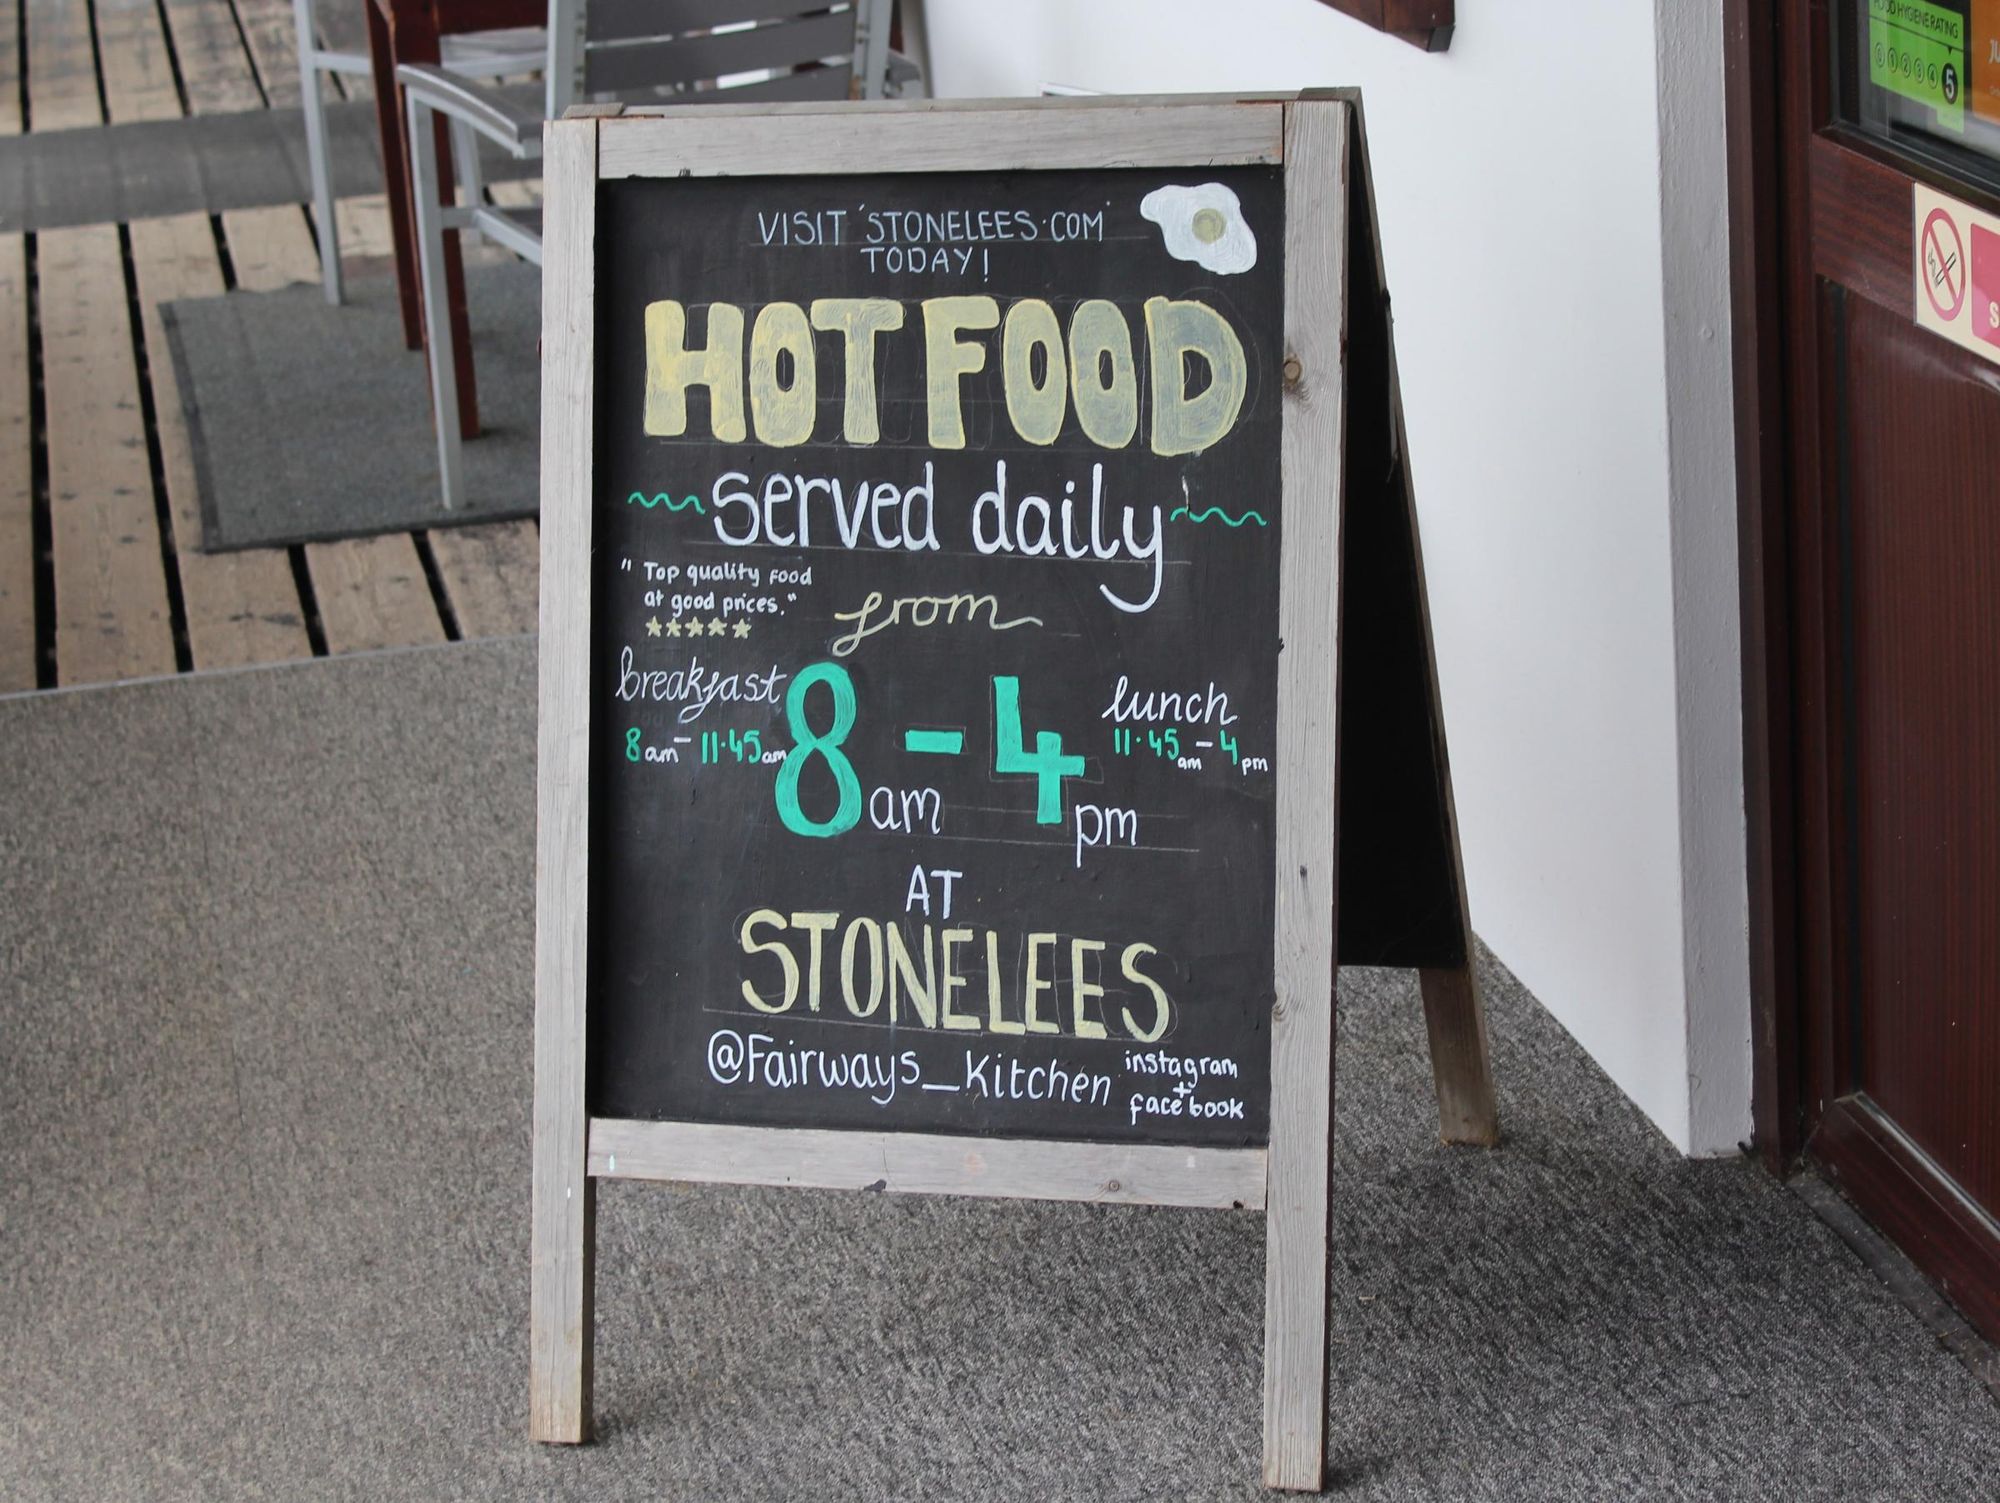 VISIT 'STONELEES.COM'
TODAY!
HOT FOOD
served daily
" Top quality food
at good prices."
from
breakfast
8am - 11.45am
8am - 4pm
lunch
11.45am - 4pm
AT
STONELEES
@Fairways_Kitchen
instagram
+
facebook
FOOD HYGIENE RATING
0 1 2 3 4 5